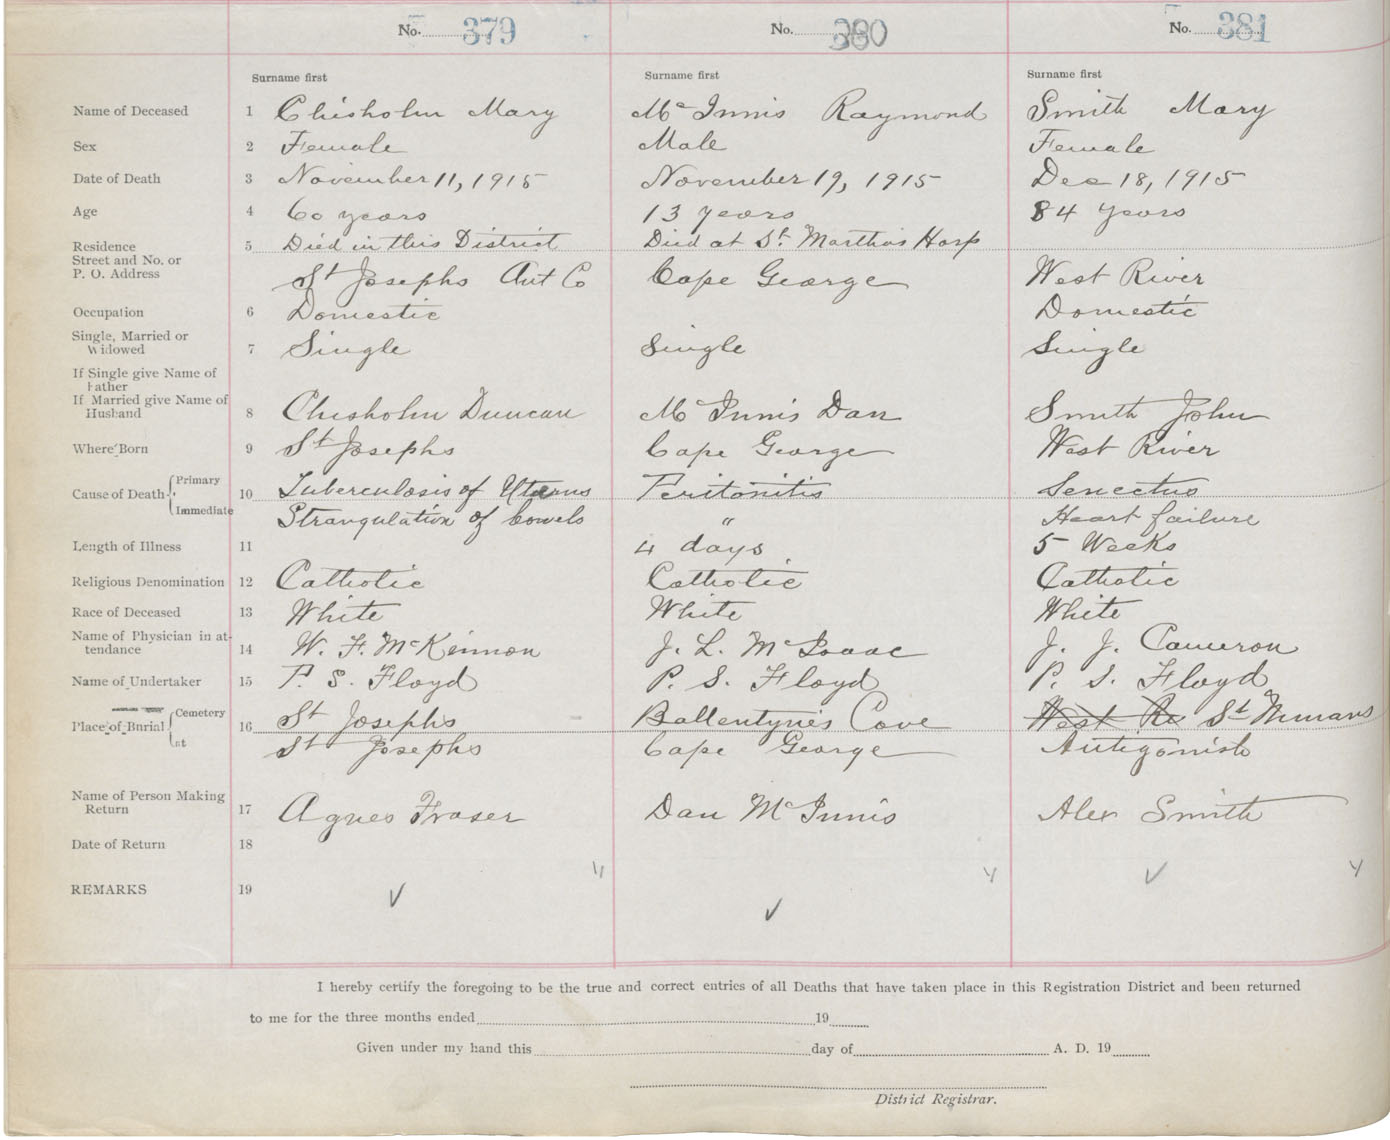 No. 379 No. 380 No. 381
Surname first Surname first Surname first
Name of Deceased 1 Chisholm Mary McInnis Raymond Smith Mary
Sex 2 Female Male Female
Date of Death 3 November 11, 1915 November 19, 1915 Dec 18, 1915
Age 4 60 years 13 years 84 years
Residence 5 Died in this District Died at St. Martha's Hosp
Street and No. or
P. O. Address St Josephs Ant Co Cape George West River
Occupation 6 Domestic Domestic
Single, Married or
Widowed 7 Single Single Single
If Single give Name of
Father
If Married give Name of
Husband 8 Chisholm Duncan McInnis Dan Smith John
Where Born 9 St Josephs Cape George West River
Cause of Death Primary 10 Tuberculosis of Uterus Peritonitis Senectus
Immediate Strangulation of bowels " Heart failure
Length of Illness 11 4 days 5 Weeks
Religious Denomination 12 Catholic Catholic Catholic
Race of Deceased 13 White White White
Name of Physician in at-
tendance 14 W. F. McKinnon J. L. McIsaac J. J. Cameron
Name of Undertaker 15 P. S. Floyd P. S. Floyd P. S. Floyd
Place of Burial Cemetery 16 St Josephs Ballentyne's Cove West Ri St Ninians
at St Josephs Cape George Antigonish
Name of Person Making
Return 17 Agnes Fraser Dan McInnis Alex Smith
Date of Return 18
REMARKS 19
I hereby certify the foregoing to be the true and correct entries of all Deaths that have taken place in this Registration District and been returned
to me for the three months ended 19
Given under my hand this day of A. D. 19
District Registrar.